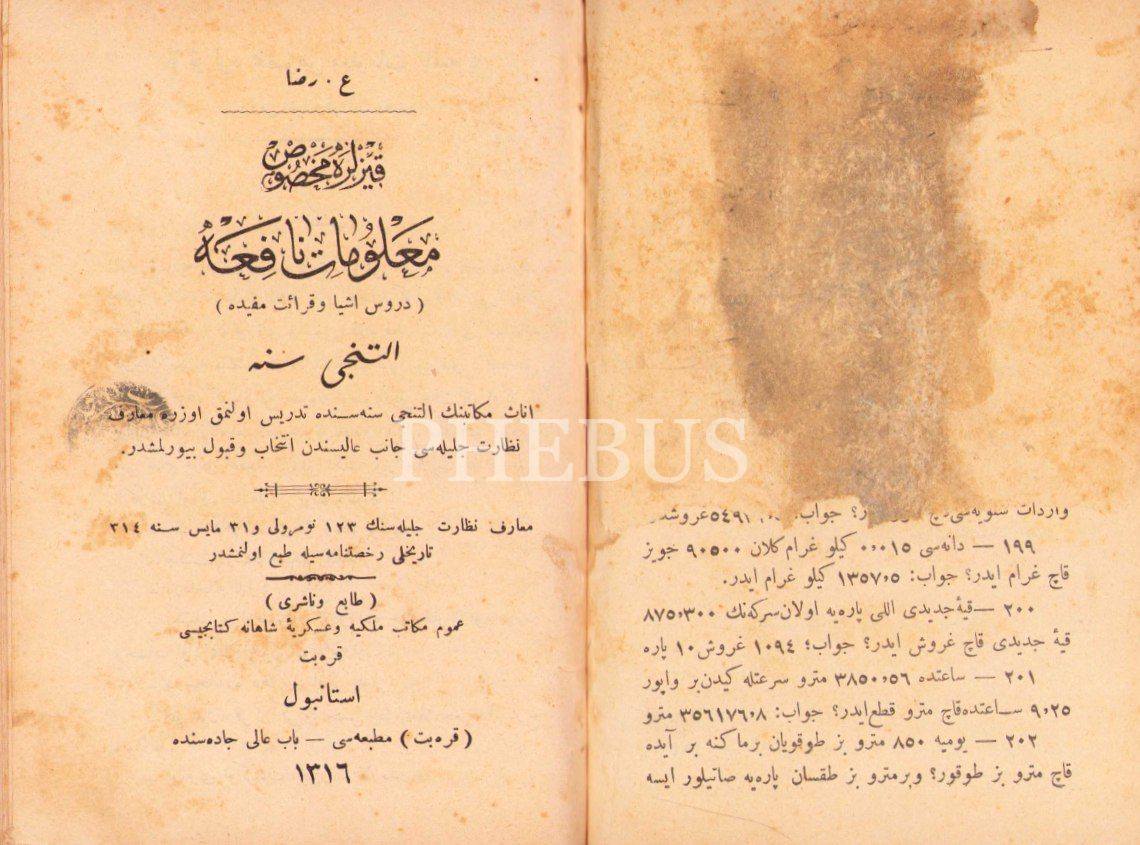 ع. رضا
قیزلره مخصوص
معلومات نافعه
( دروس اشیا وقرائت مفیده )
التنجی سنه
اناث مکاتبنك التنجی سنه سنده تدریس اولنمق اوزره معارف
نظارت جلیله سی جانب عالیسندن انتخاب وقبول بیورلمشدر.
معارف نظارت جلیله سنك ١٢٣ نومرولی و٣١ مایس سنه ٣١٤
تاریخلی رخصتنامه سیله طبع اولنمشدر
( طابع وناشری )
عموم مکاتب ملکیه وعسکریۀ شاهانه کتابجیسی
قره بت
استانبول
( قره بت ) مطبعه سی — باب عالی جاده سنده
١٣١٦
واردات سنویه سی جواب:
١٩٩ — دانه سی ٠,٠١٥ کیلو غرام کلان ٩٠٥٠٠ جویز
قاچ غرام ایدر؟ جواب: ١٣٥٧,٥ کیلو غرام ایدر.
٢٠٠ — قیۀ جدیدی اللی پاره یه اولان سرکه نك ٨٧٥,٣٠٠
قیۀ جدیدی قاچ غروش ایدر؟ جواب؛ ١٠٩٤ غروش ١٠ پاره
٢٠١ — ساعتده ٣٨٥٠,٥٦ مترو سرعتله کیدن بر واپور
٩,٢٥ ساعتده قاچ مترو قطع ایدر؟ جواب: ٣٥٦١٧٦,٨ مترو
٢٠٢ — یومیه ٨٥٠ مترو بز طوقویان برماکنه بر آیده
قاچ مترو بز طوقور؟ وبرمترو بز طقسان پاره یه صاتیلور ایسه
PHEBUS